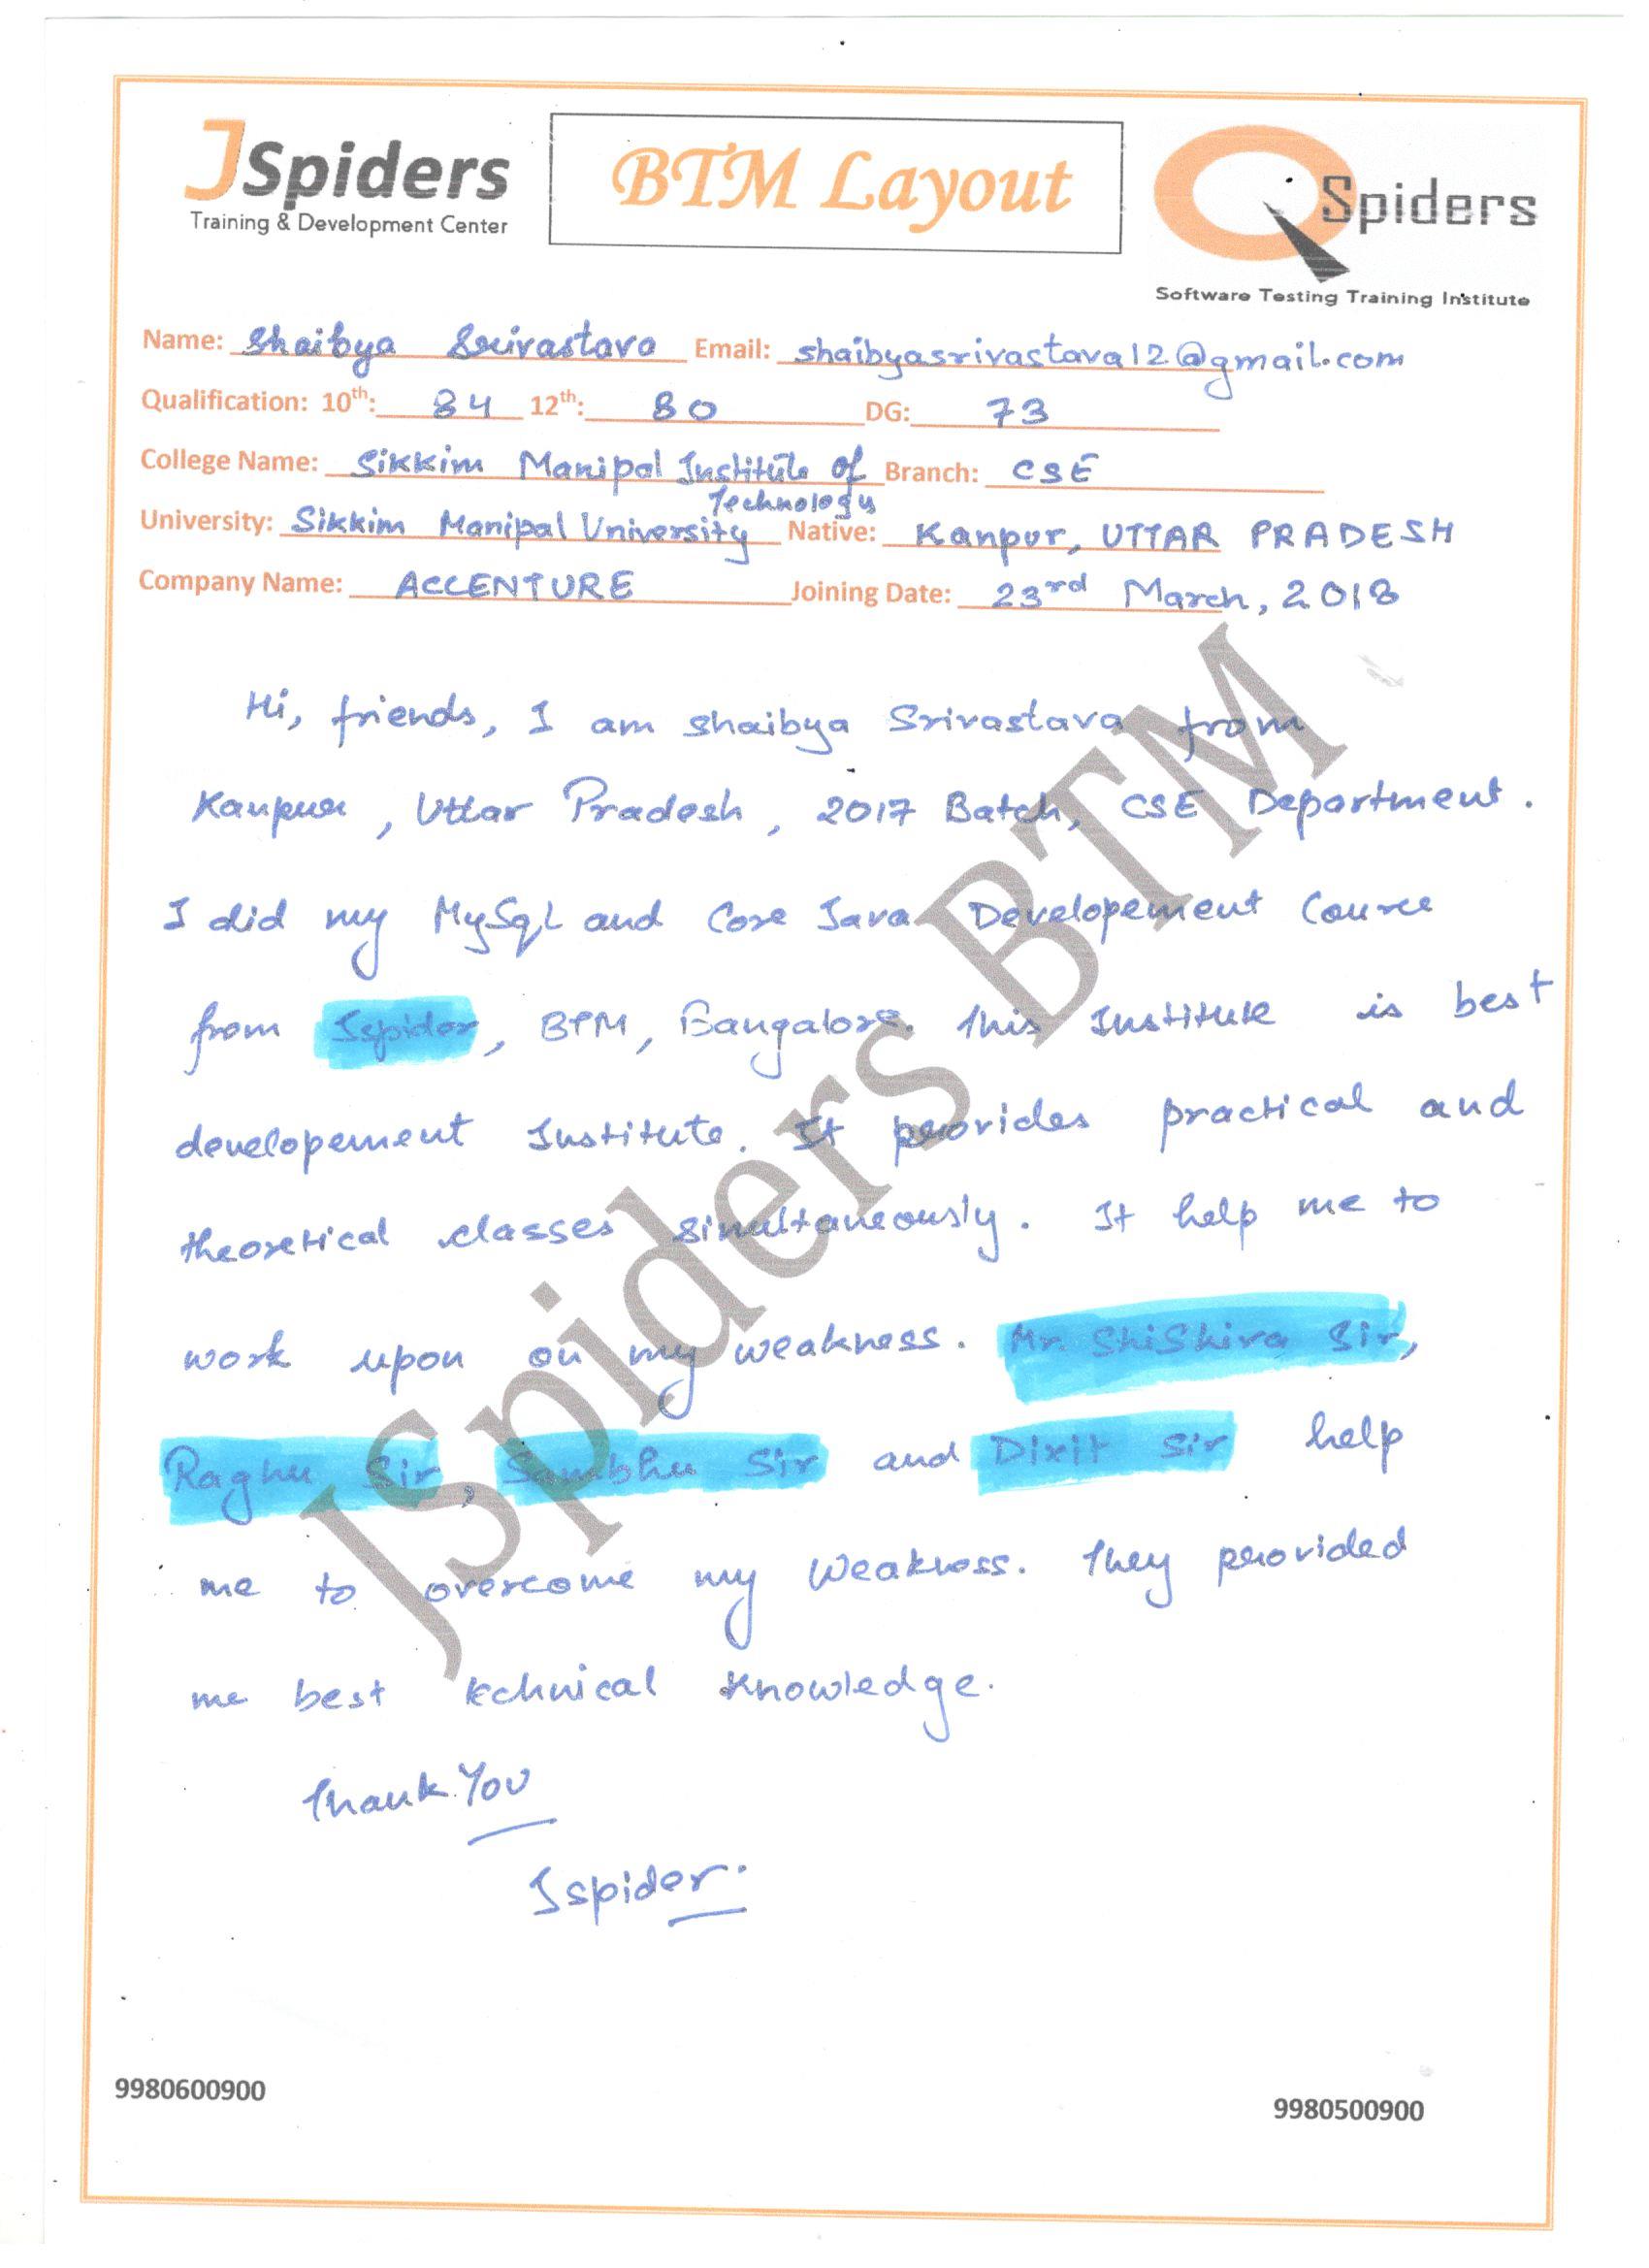 JSpiders
Training & Development Center
BTM Layout
QSpiders
Software Testing Training Institute
Name: Shaibya Srivastava Email: shaibyasrivastava12@gmail.com
Qualification: 10th: 84 12th: 80 DG: 73
College Name: Sikkim Manipal Institute of Technology Branch: CSE
University: Sikkim Manipal University Native: Kanpur, UTTAR PRADESH
Company Name: ACCENTURE Joining Date: 23rd March, 2018
Hi, friends, I am Shaibya Srivastava from
Kanpur, Uttar Pradesh, 2017 Batch, CSE Department.
I did my MySqL and Core Java Developement Course
from Jspider, BTM, Bangalore. This Institute is best
developement Institute. It provides practical and
theoretical classes simultaneously. It help me to
work upon on my weakness. Mr. ShiShira Sir,
Raghu Sir, Sambhu Sir and Dixit Sir help
me to overcome my weakness. They provided
me best technical knowledge.
Thank You
Jspider.
JSpiders BTM
9980600900
9980500900